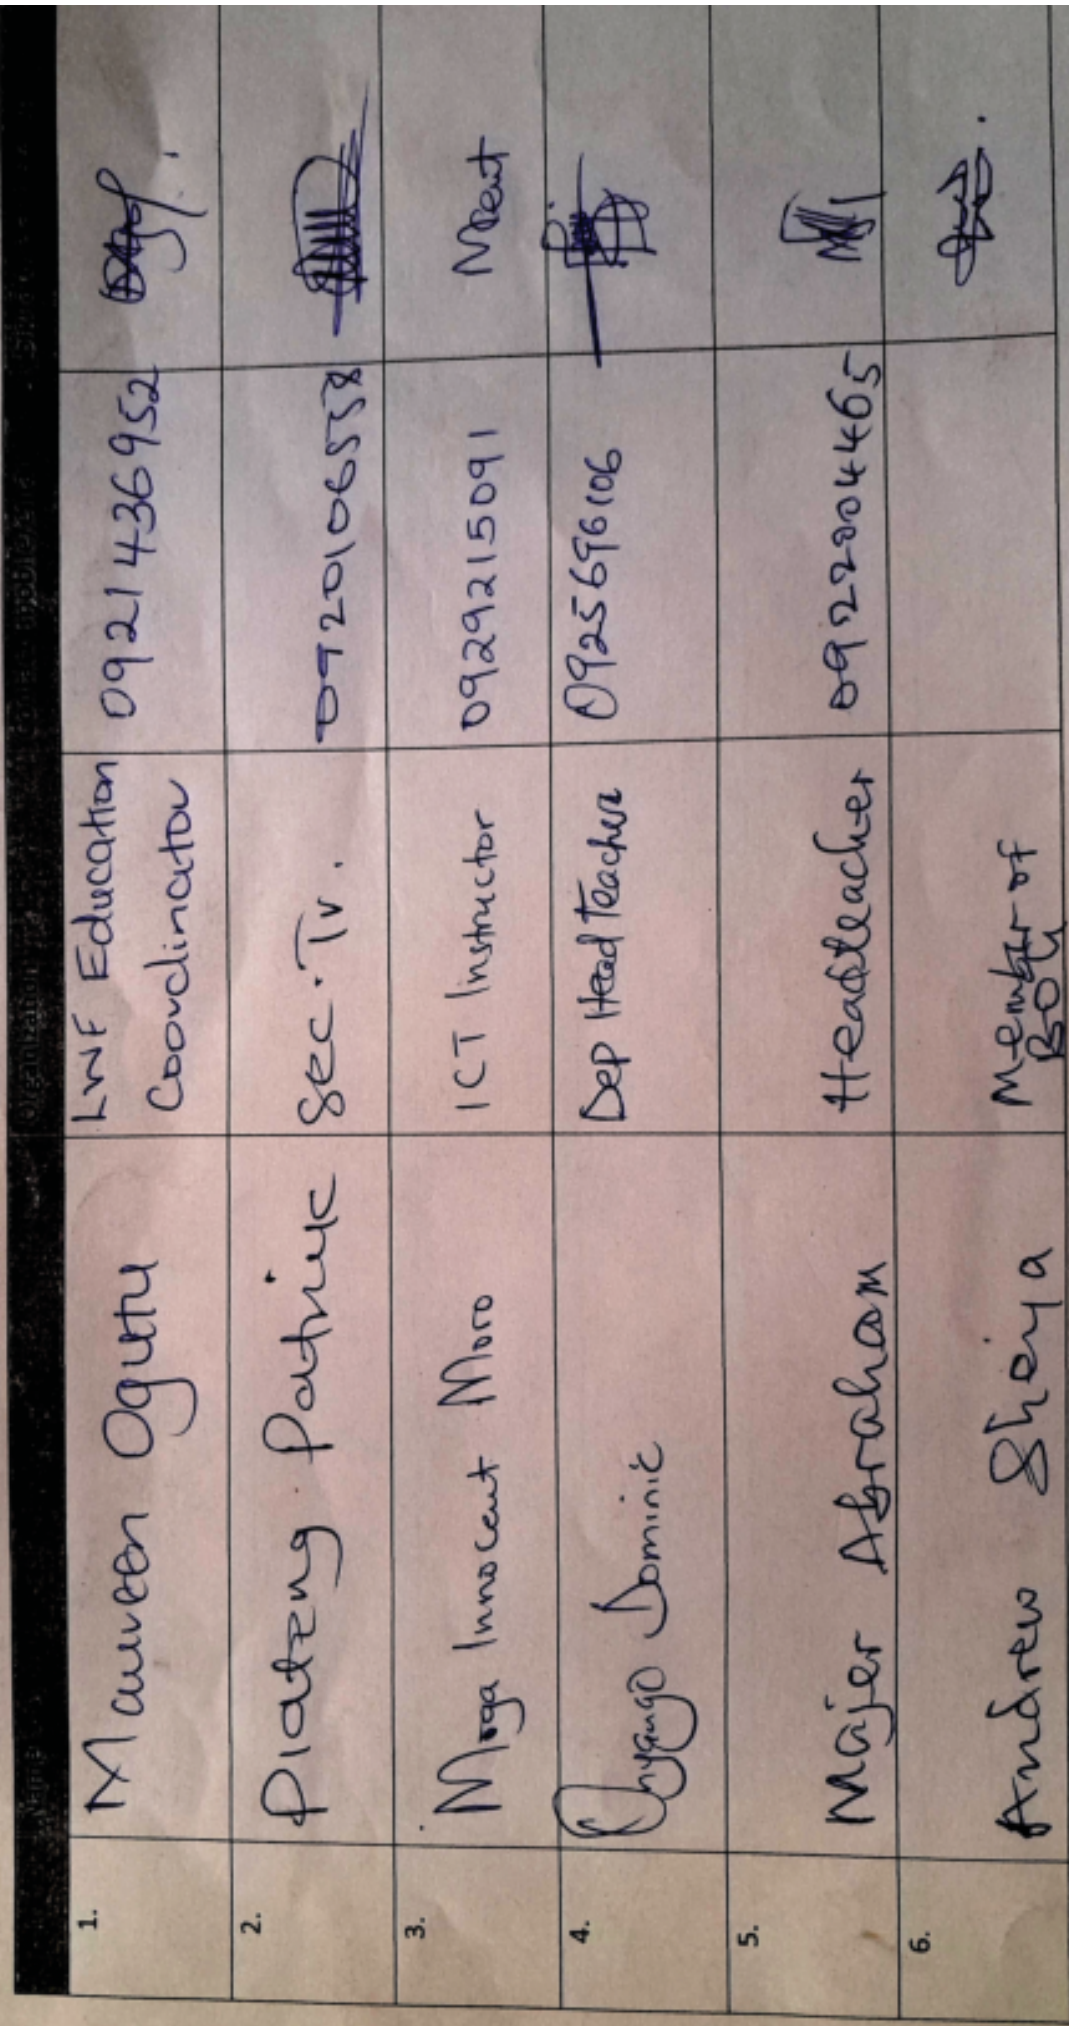 Name Organization Phone mobile no Signature
1. Maureen Ogutu LWF Education Coordinator 0921436952
2. Piateng Patrick Sec. Tr. 0920106558
3. Moga Innocent Moro ICT Instructor 0929215091
4. Onyango Dominic Dep Head Teacher 0925696106
5. Majer Abraham Headteacher 0922004465
6. Andrew Sheiya Member of BOG